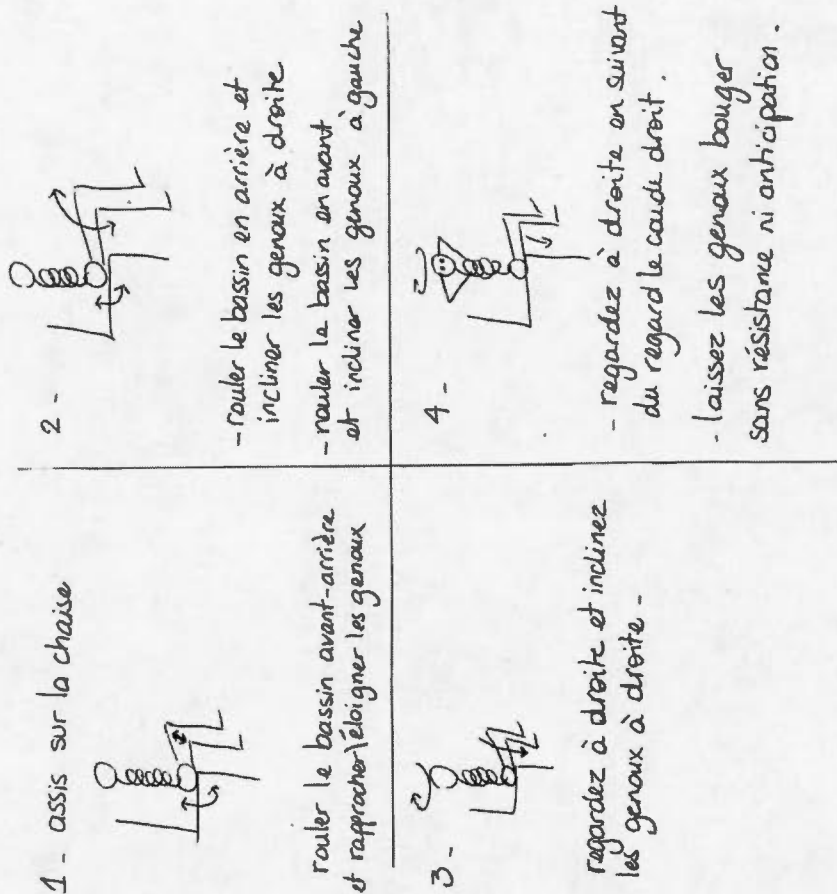 1 - assis sur la chaise
rouler le bassin avant-arrière
et rapprocher/éloigner les genoux
2 -
- rouler le bassin en arrière et
incliner les genoux à droite
- rouler le bassin en avant
et incliner les genoux à gauche
3 -
regardez à droite et inclinez
les genoux à droite -
4 -
- regardez à droite en suivant
du regard le coude droit.
- laissez les genoux bouger
sans résistance ni anticipation.